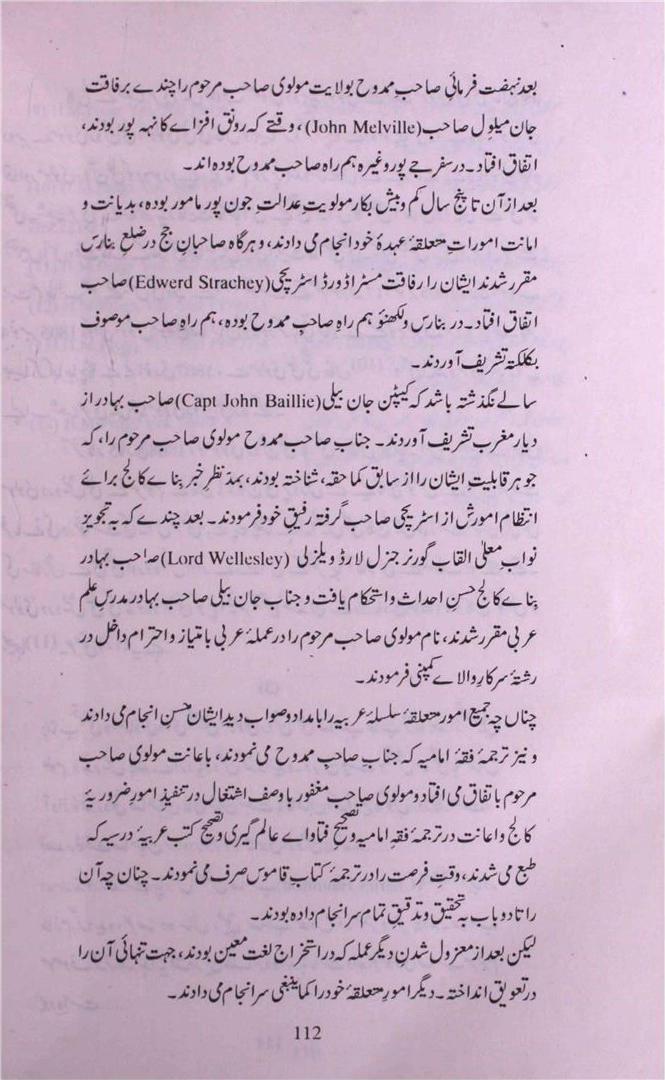 بعد نہضت فرمائیِ صاحبِ ممدوح بولایت مولوی صاحب مرحوم را چندے برفاقت
جان میلوِل صاحب (John Melville)، وقتے کہ رونق افزاے کانہہ پور بودند،
اتفاق افتاد۔ در سفر جے پور وغیرہ ہم راہ صاحب ممدوح بودہ اند۔
بعد از آن تا پنج سال کم و بیش بکار مولویتِ عدالتِ جون پور مامور بودہ، بدیانت و
امانت اموراتِ متعلقۂ عہدۂ خود انجام می دادند، و ہرگاہ صاحبانِ جج در ضلعِ بنارس
مقرر شدند ایشان را رفاقت مسٹر اڈورڈ اسٹریچی (Edwerd Strachey) صاحب
اتفاق افتاد۔ در بنارس و لکھنؤ ہم راہِ صاحب ممدوح بودہ، ہم راہِ صاحب موصوف
بکلکتہ تشریف آوردند۔
سالے نگذشتہ باشد کہ کیپٹن جان بیلی (Capt John Baillie) صاحب بہادر از
دیار مغرب تشریف آوردند۔ جنابِ صاحب ممدوح مولوی صاحب مرحوم را، کہ
جوہر قابلیتِ ایشان را از سابق کما حقہ، شناختہ بودند، بمدّ نظر خبر بناے کالج براے
انتظام امورش از اسٹریچی صاحب گرفتہ رفیقِ خود فرمودند۔ بعد چندے کہ بہ تجویز
نوابِ معلیٰ القاب گورنر جنرل لارڈ ویلزلی (Lord Wellesley) صاحب بہادر
بناے کالج حسنِ احداث و استحکام یافت و جناب جان بیلی صاحب بہادر مدرسِ علم
عربی مقرر شدند، نام مولوی صاحب مرحوم را در عملۂ عربی بامتیاز و احترام داخل در
رشتۂ سرکارِ والاے کمپنی فرمودند۔
چناں چہ جمیع امور متعلقۂ سلسلۂ عربیہ را بامداد و صواب دید ایشان بحسن انجام می دادند
و نیز ترجمۂ فقہ امامیہ کہ جنابِ صاحب ممدوح می نمودند، باعانت مولوی صاحب
مرحوم باتفاق می افتاد و مولوی صاحب مغفور باوصف اشتغال در تنفیذِ امورِ ضروریۂ
کالج و اعانت در ترجمۂ فقہِ امامیہ و تصحیح فتاواے عالم گیری و تصحیح کتب عربیۂ درسیہ کہ
طبع می شدند، وقتِ فرصت را در ترجمۂ کتابِ قاموس صرف می نمودند۔ چنان چہ آن
را تا دو باب بہ تحقیق و تدقیقِ تمام سر انجام دادہ بودند۔
لیکن بعد از معزول شدنِ دیگر عملہ کہ در استخراج لغت معین بودند، جہت تنہائی آن را
در تعویق انداختہ۔ دیگر امور متعلقۂ خود را کما ینبغی سر انجام می دادند۔
112